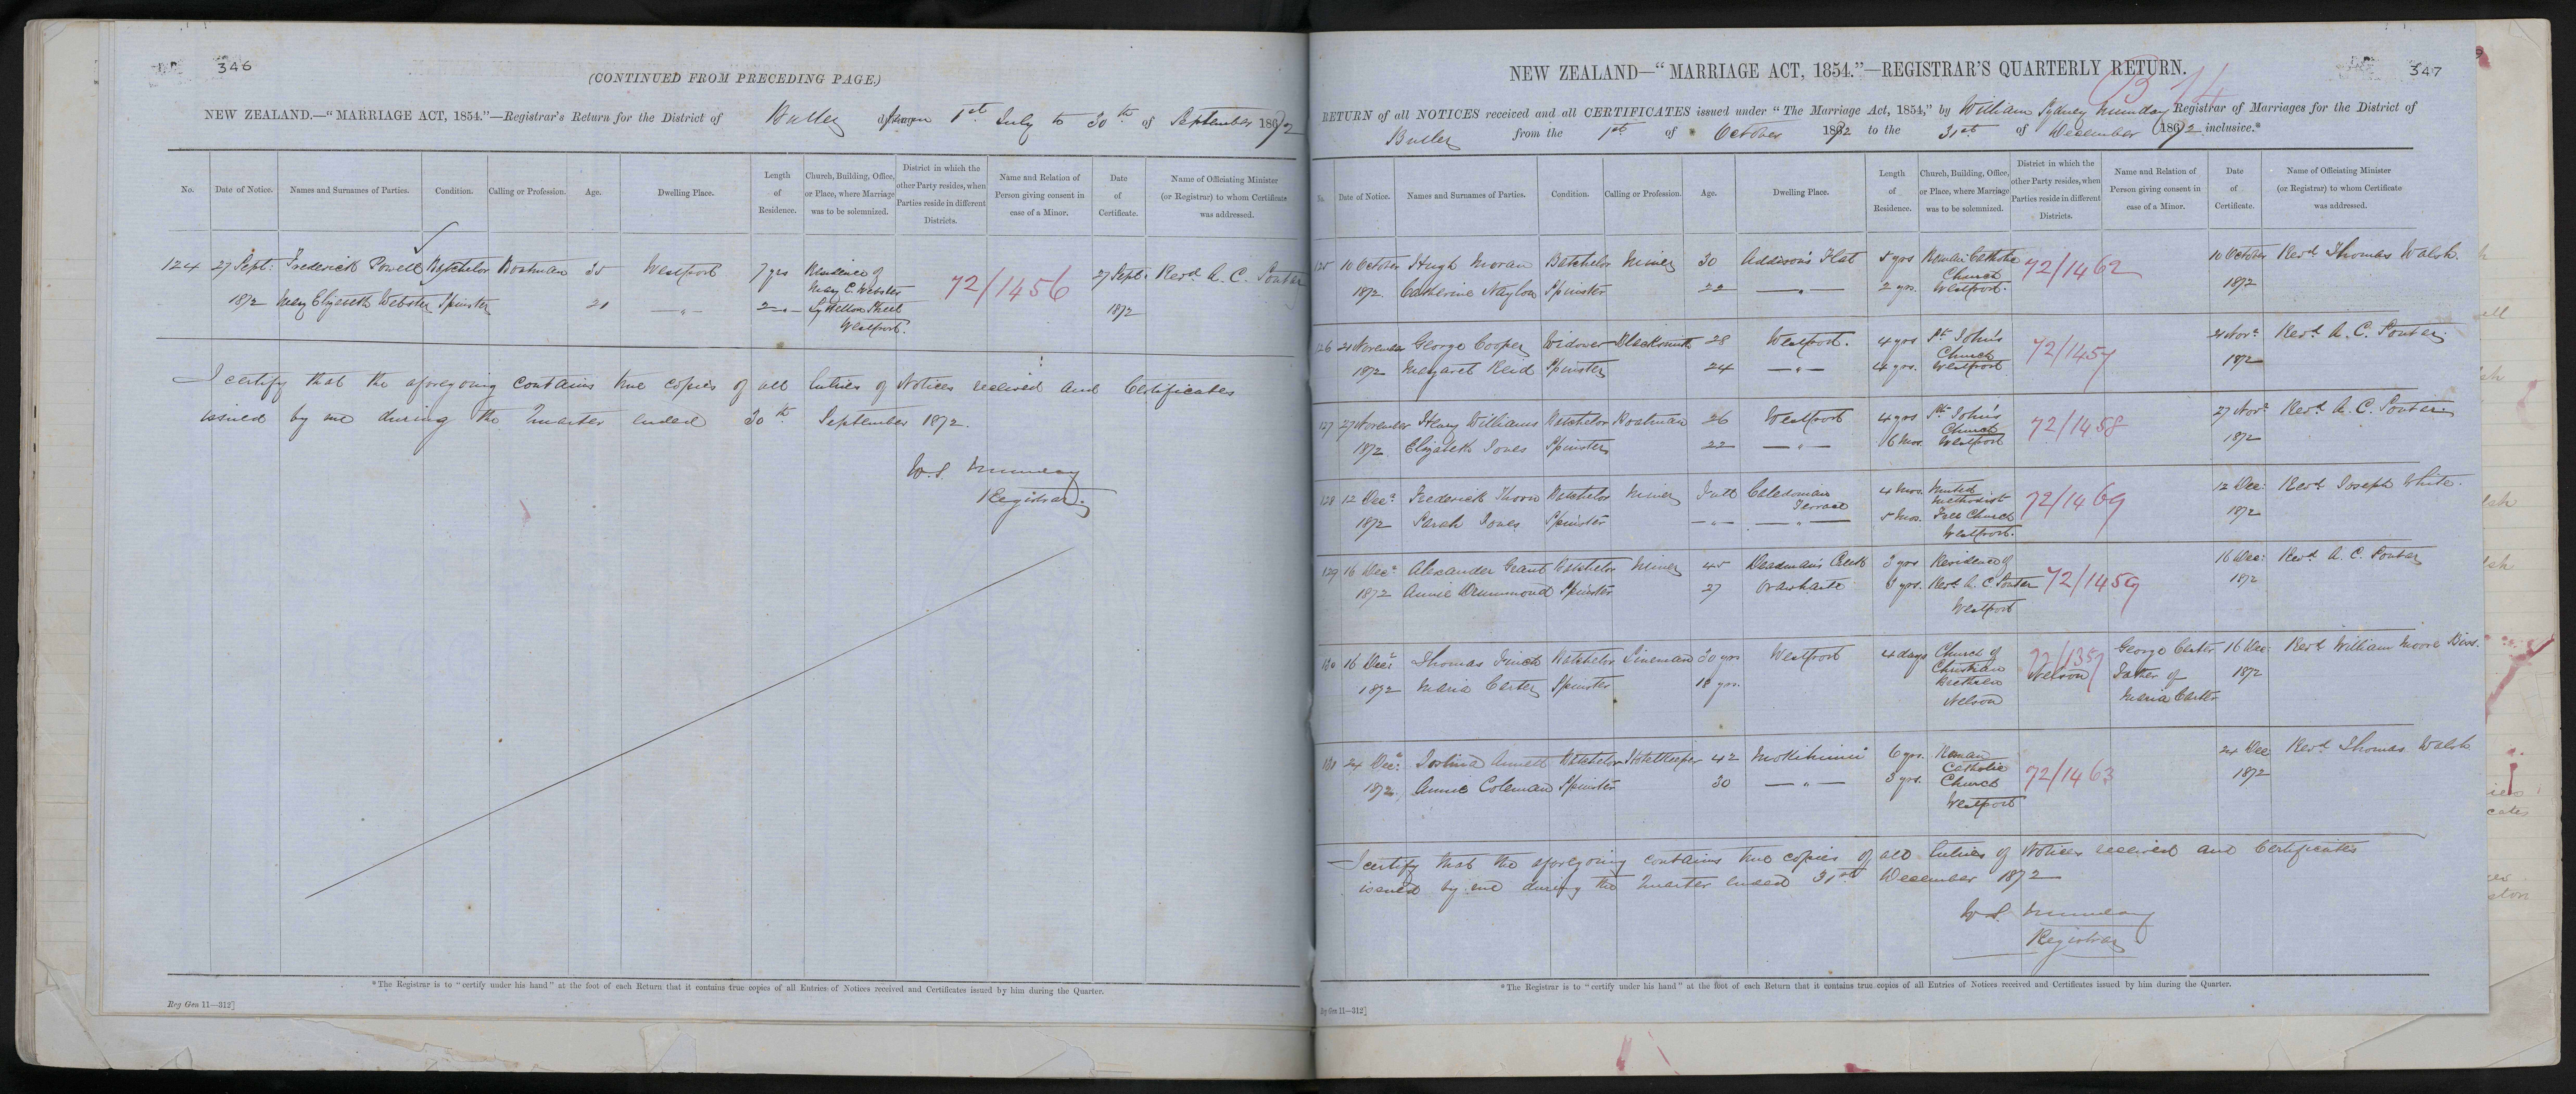 346
(CONTINUED FROM PRECEDING PAGE.)
NEW ZEALAND.—"MARRIAGE ACT, 1854."—Registrar's Return for the District of Buller from 1st July to 30th of September 1872
No. Date of Notice. Names and Surnames of Parties. Condition. Calling or Profession. Age. Dwelling Place. Length of Residence. Church, Building, Office, or Place, where Marriage was to be solemnized. District in which the other Party resides, when Parties reside in different Districts. Name and Relation of Person giving consent in case of a Minor. Date of Certificate. Name of Officiating Minister (or Registrar) to whom Certificate was addressed.
124 27 Sept: Frederick Powell Batchelor Boatman 35 Westport 7 yrs Residence of 72/1456 27 Sept: Revd A. C. Soutar
Mary E. Webster
1872 Mary Elizabeth Webster Spinster 21 — " — 2 — " — Lyttelton Street 1872
Westport.
I certify that the aforegoing contains true copies of all Entries of Notices received and Certificates
issued by me during the Quarter ended 30th September 1872.
W. S. Munday
Registrar.
*The Registrar is to "certify under his hand" at the foot of each Return that it contains true copies of all Entries of Notices received and Certificates issued by him during the Quarter.
Reg Gen 11—312]
347
NEW ZEALAND—"MARRIAGE ACT, 1854."—REGISTRAR'S QUARTERLY RETURN.
RETURN of all NOTICES received and all CERTIFICATES issued under "The Marriage Act, 1854," by William Sydney Munday Registrar of Marriages for the District of
Buller from the 1st of October 1872 to the 31st of December 1872 inclusive.*
No. Date of Notice. Names and Surnames of Parties. Condition. Calling or Profession. Age. Dwelling Place. Length of Residence. Church, Building, Office, or Place, where Marriage was to be solemnized. District in which the other Party resides, when Parties reside in different Districts. Name and Relation of Person giving consent in case of a Minor. Date of Certificate. Name of Officiating Minister (or Registrar) to whom Certificate was addressed.
125 10 October Hugh Moran Batchelor Miner 30 Addison's Flat 5 yrs Roman Catholic 72/1462 10 October Revd Thomas Walsh.
Church
1872. Catherine Naylon Spinster 22 — " — 2 yrs. Westport. 1872
126 21 November George Cooper Widower Blacksmith 28 Westport. 4 yrs St John's 72/1457 21 Novr Revd A. C. Soutar.
Church
1872 Margaret Reid Spinster 24 — " — 4 yrs. Westport 1872
127 27 November Henry Williams Batchelor Boatman 26 Westport 4 yrs St John's 72/1458 27 Novr Revd A. C. Soutar.
Church
1872 Elizabeth Jones Spinster 22 — " — 6 Mos. Westport 1872
128 12 Decr Frederick Thorn Batchelor Miner Full Caledonian Terrace 4 Mos. United Methodist 72/1469 12 Dec: Revd Joseph White.
1872 Sarah Jones Spinster — " — — " — 5 Mos. Free Church 1872
Westport.
129 16 Decr Alexander Grant Batchelor Miner 45 Deadman's Creek 3 yrs Residence of 72/1459 16 Dec: Revd A. C. Soutar
1872 Annie Drummond Spinster 27 Orawhaite 3 yrs. Revd A. C. Soutar 1872
Westport
130 16 Decr Thomas Finch Batchelor Lineman 30 yrs Westport 4 days Church of 72/1357 George Carter 16 Dec: Revd William Moore
Christian Nelson Father of 1872
1872 Maria Carter Spinster 18 yrs. Brethren Maria Carter
Nelson
131 24 Decr Joshua Batchelor Hotelkeeper 42 Mokihinui 6 yrs. Roman 24 Dec Revd Thomas Walsh
Catholic 72/1463
1872. Annie Coleman Spinster 30 — " — 3 yrs. Church 1872
Westport
I certify that the aforegoing contains true copies of all Entries of Notices received and Certificates
issued by me during the Quarter ended 31st December 1872
W. S. Munday
Registrar
*The Registrar is to "certify under his hand" at the foot of each Return that it contains true copies of all Entries of Notices received and Certificates issued by him during the Quarter.
Reg Gen 11—312]